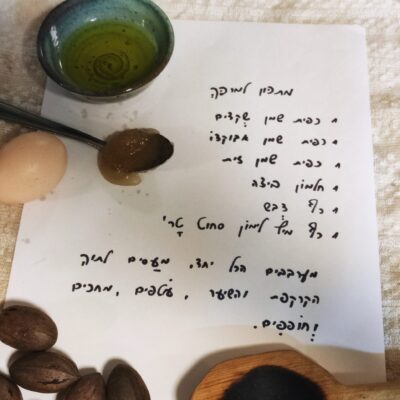 מתכון למרפה
1 כפית שמן שְקדים
1 כפית שמן אבוקדו
1 כפית שמן זית
1 חלמון ביצה
1 כף דְבש
1 כף מיץ לימון סחוט טָרי
מערבבים הכל יחד. מְעַסים לתוך
הקרקפת והשיער, עוֹטפים, מחכים
וְחוֹפפִים.